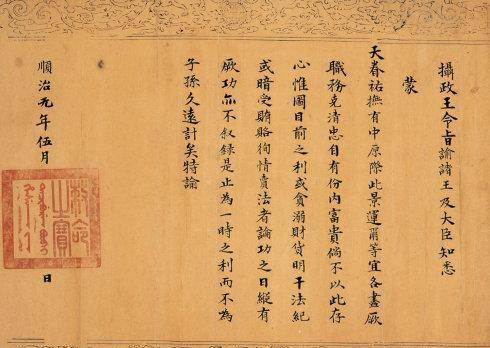 攝政王令旨諭諸王及大臣知悉
蒙
天眷祐撫有中原際此景運爾等宜各盡厥
職務克清忠自有份內富貴倘不以此存
心惟圖目前之利或貪溺財貨明干法紀
或暗受賄賂徇情賣法者論功之日縱有
厥功亦不敘錄是止為一時之利而不為
子孫久遠計矣特諭
順治元年伍月 日
制命之寶